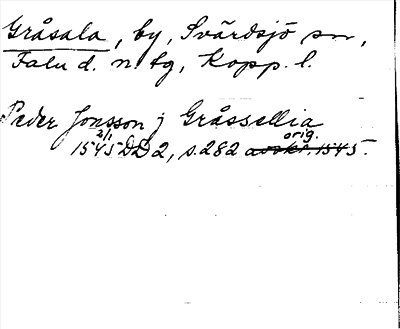 Gråsala, by, Svärdsjö sn,
Falu d. n tg, Kopp. l.
Peder Jonsson j Gråssallia
2/1 orig.
1545 DD 2, s. 282 avskr. 1545.